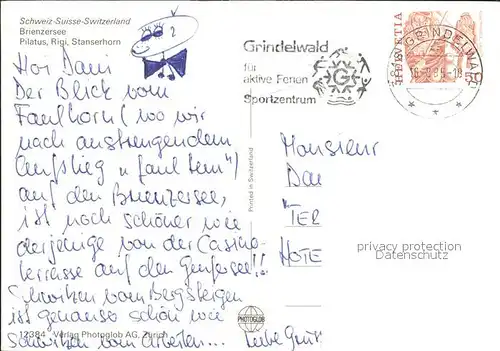 Schweiz-Suisse-Switzerland
Brienzersee
Pilatus, Rigi, Stanserhorn
Grindelwald
für
aktive Ferien
Sportzentrum
G
HELVETIA
GRINDELWALD
Hoi Dani
Der Blick vom
Faulhorn (wo wir
nach anstrengendem
Aufstieg "faul tem")
auf den Brienzersee,
ist noch schöner wie
derjenige von der Casino-
terrasse auf den Genfersee!!
Schwitzen vom Bergsteigen
ist genauso schön wie
Schwitzen vom Arbeiten...
Liebe Grüss
Printed in Switzerland
Monsieur
HOTE
privacy protection
Datenschutz
PHOTOGLOB
12384 Verlag Photoglob AG, Zürich